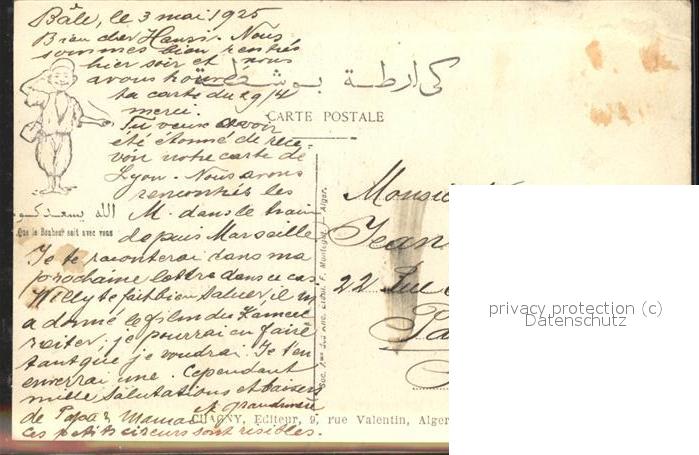 Bâle, le 3 mai 1925
Bien cher Hansi. Nous
sommes bien rentrés
hier soir et nous
avons trouvé
ta carte du 29/4
merci.
Tu veux avoir
été étonné de rece-
voir notre carte de
Lyon. Nous avons
rencontrés les
M. dans le train
depuis Marseille
Je te raconterai dans ma
prochaine lettre dans ce cas
Willy te fait bien saluer, il m
a donné le film du Kameel
reiter, je pourrai en faire
tant que je voudrai. Je t'en
enverrai une. Cependant
mille salutations et baisers
de Papa & Maman et grandmère
ces petits cireurs sont risibles.
الله يسعدكم
Que le Bonheur soit avec vous
كارطة بوسطة
CARTE POSTALE
Monsie
Jean
22 Rue
Pa
Alger.
CHAGNY, Editeur, 9, rue Valentin, Alger
privacy protection (c)
Datenschutz